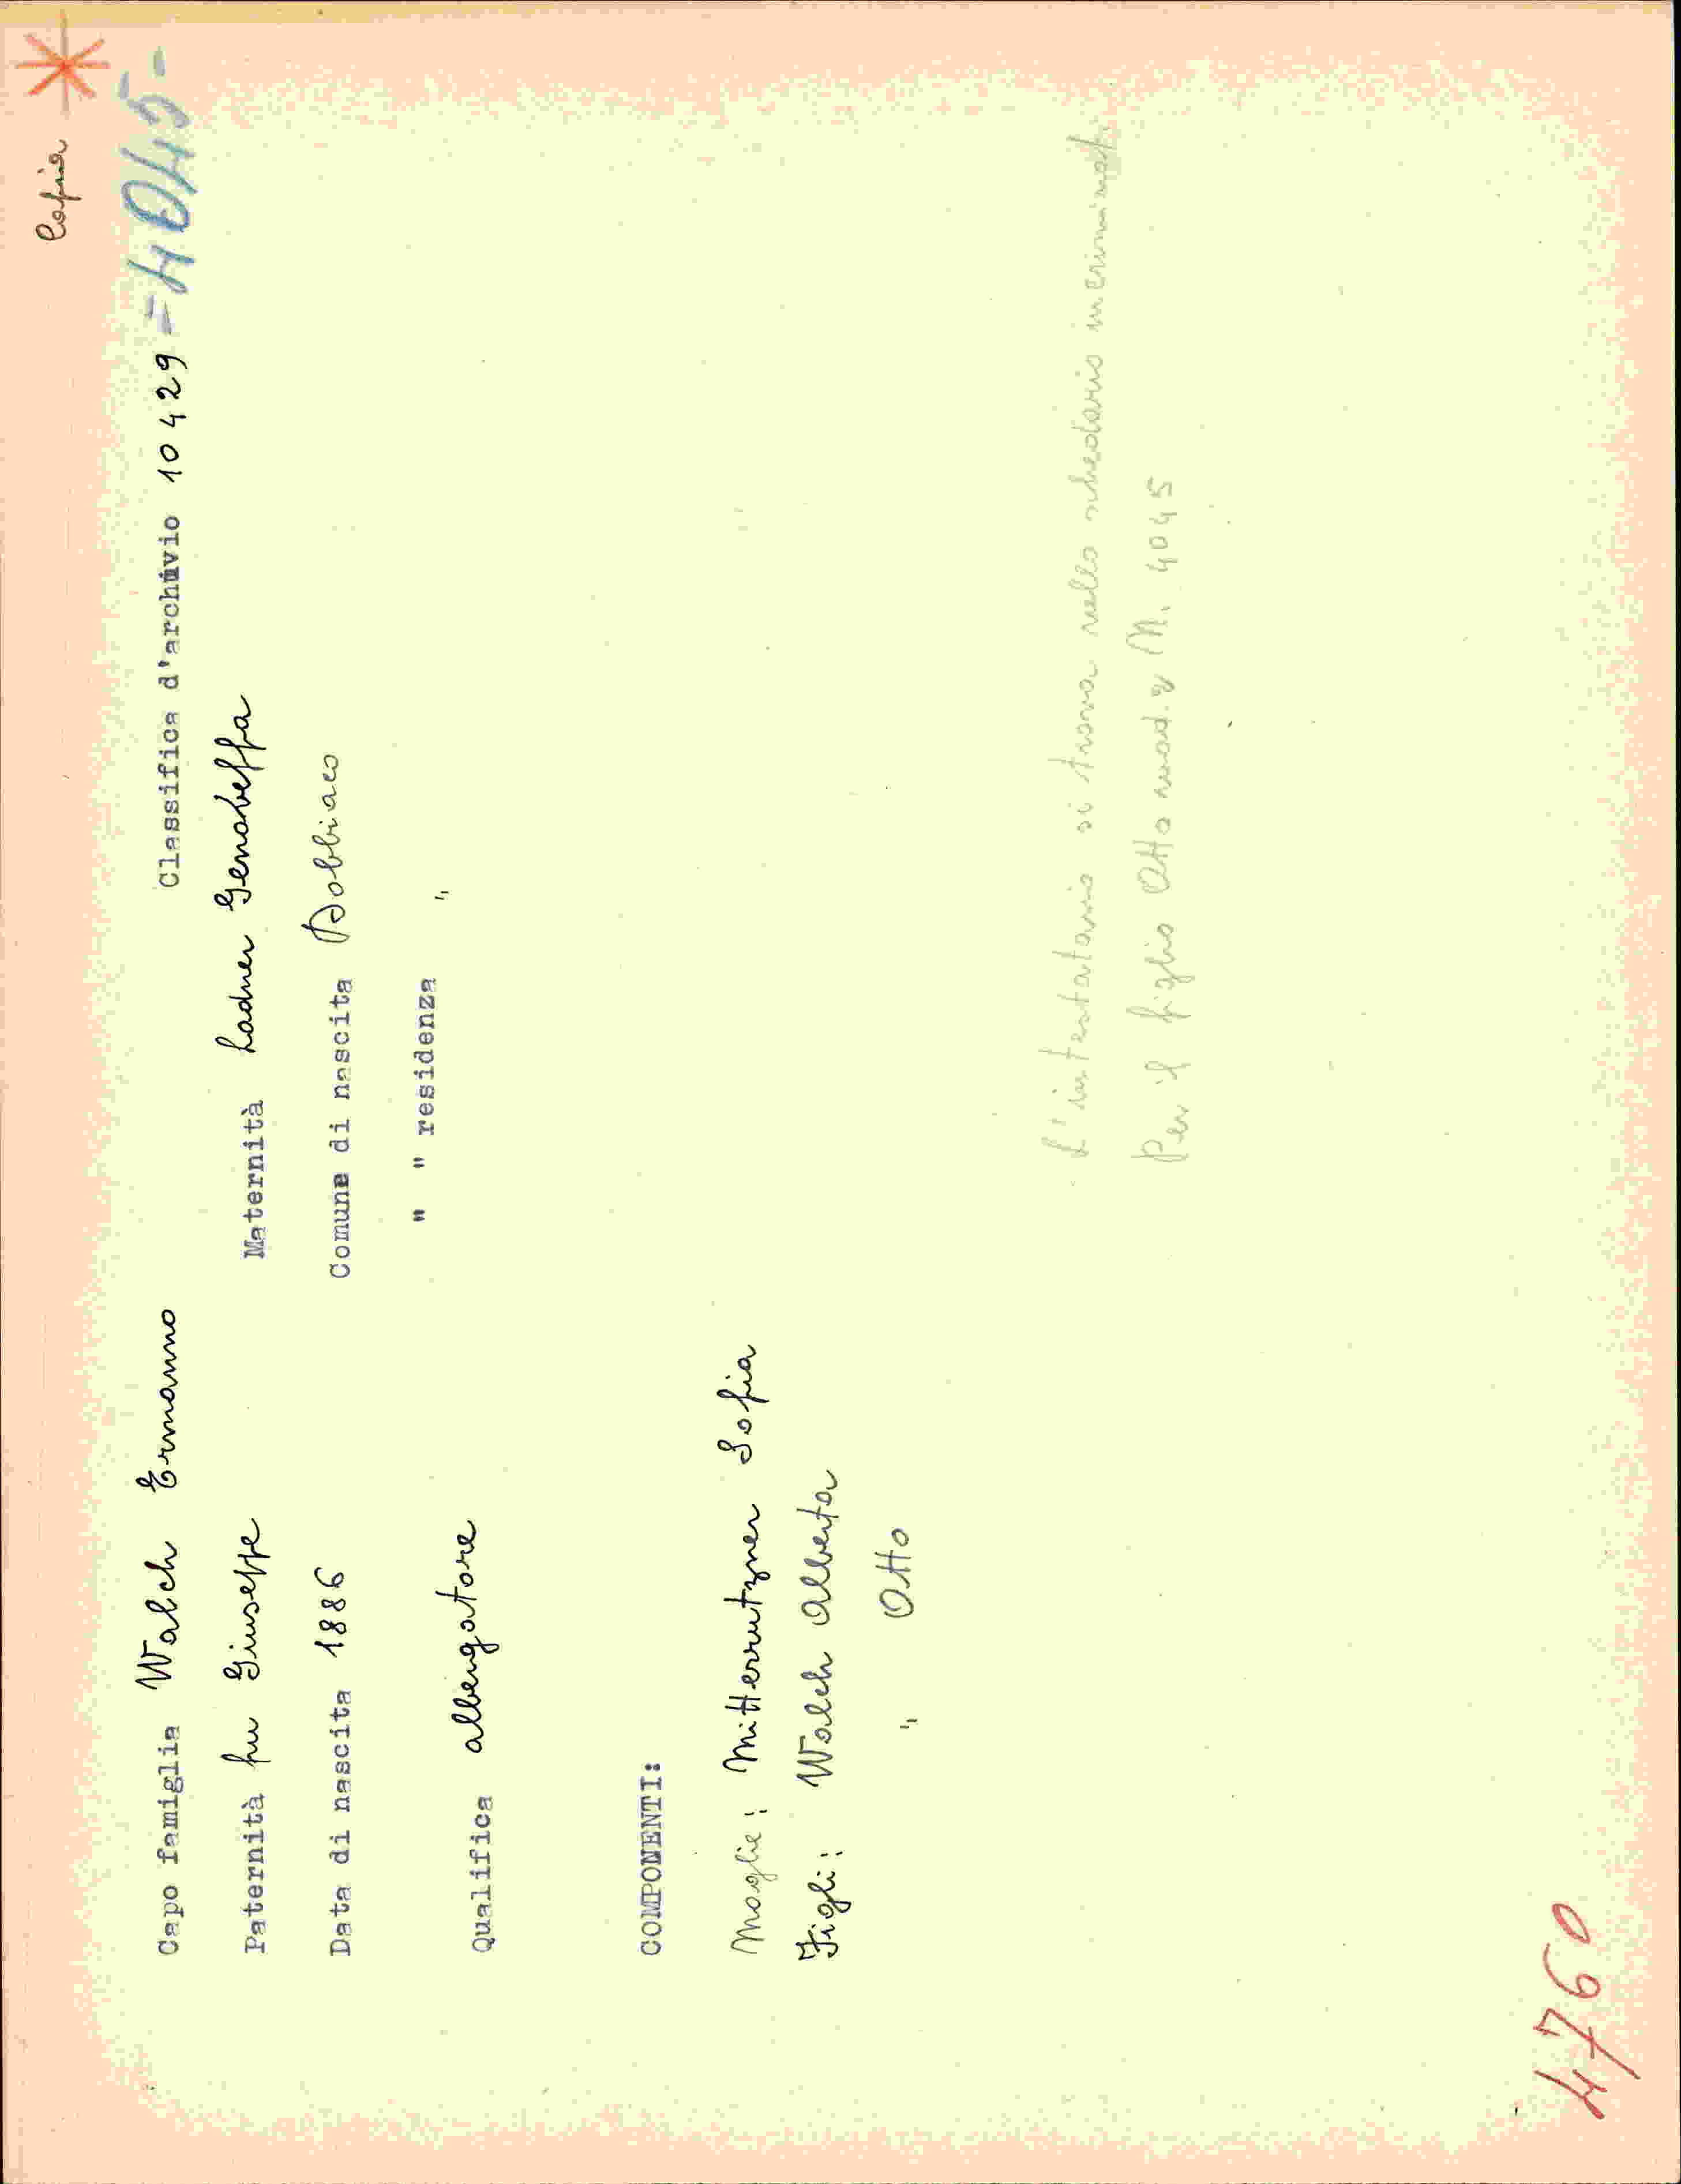 Copia
Capo famiglia Walch Ermanno Classifica d'archivio 10429 = 4045 -
Paternità fu Giuseppe Maternità Ladner Genoveffa
Data di nascita 1886 Comune di nascita Dobbiaco
" " residenza "
Qualifica albergatore
COMPONENTI:
Moglie: Mitterrutzner Sofia
Figli: Walch Alberta
" Otto
L'intestatario si trova nello schedario incriminati
Per il figlio Otto mod. 2 N. 4045
4760